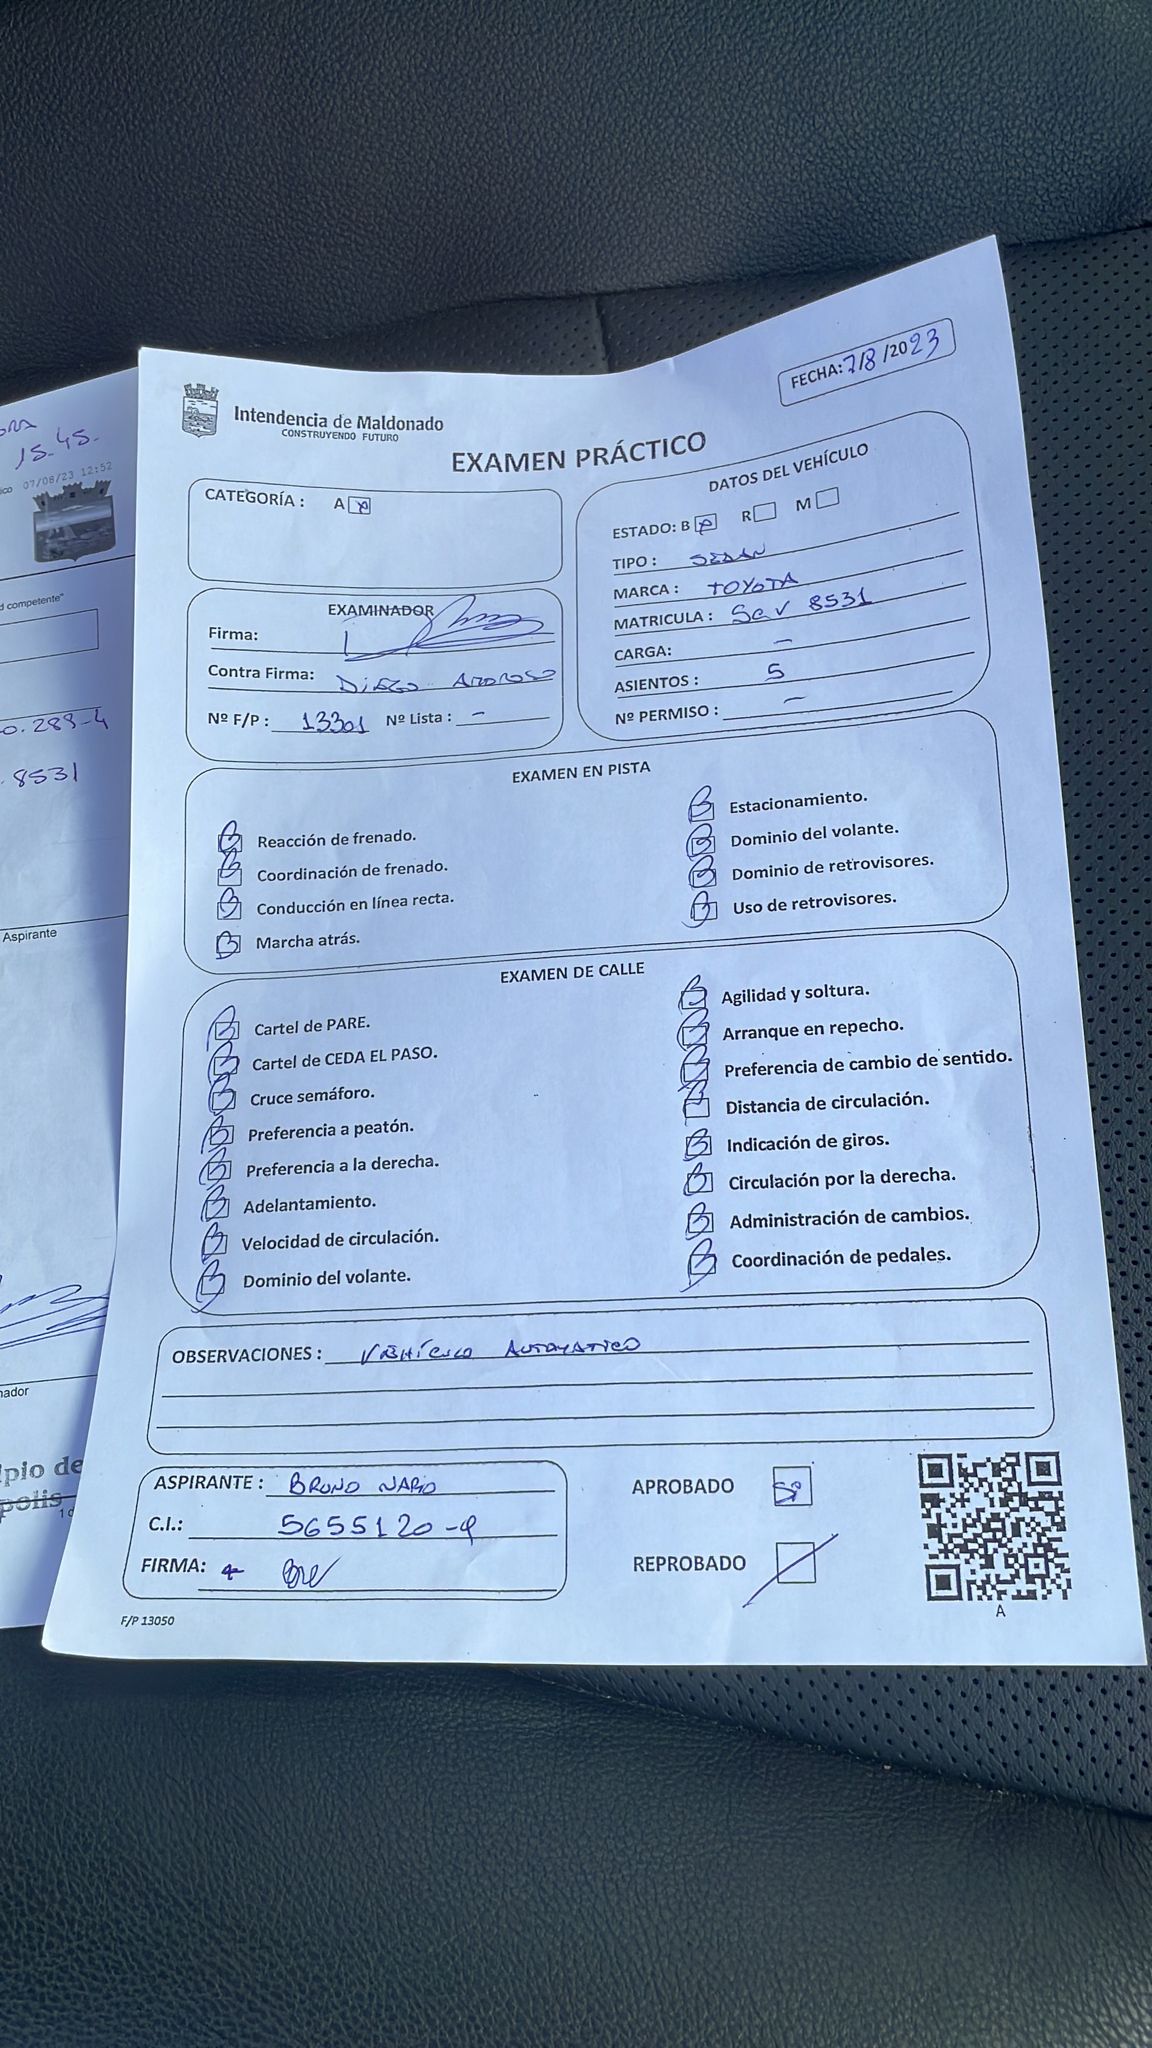 ORA
15.45.
ico 07/08/23 12:52
d competente"
0.289-4
. 8531
Aspirante
nador
ipio de
polis
Intendencia de Maldonado
CONSTRUYENDO FUTURO
FECHA: 7/8/2023
EXAMEN PRÁCTICO
CATEGORÍA : A
DATOS DEL VEHÍCULO
ESTADO: B R M
TIPO : SEDAN
MARCA : TOYOTA
MATRICULA : 8531
CARGA: -
ASIENTOS : 5
Nº PERMISO : -
EXAMINADOR
Firma:
Contra Firma: DIEGO
Nº F/P : 13301 Nº Lista : -
EXAMEN EN PISTA
B Reacción de frenado.
B Coordinación de frenado.
B Conducción en línea recta.
B Marcha atrás.
B Estacionamiento.
B Dominio del volante.
B Dominio de retrovisores.
B Uso de retrovisores.
EXAMEN DE CALLE
B Cartel de PARE.
B Cartel de CEDA EL PASO.
B Cruce semáforo.
B Preferencia a peatón.
B Preferencia a la derecha.
B Adelantamiento.
B Velocidad de circulación.
B Dominio del volante.
B Agilidad y soltura.
B Arranque en repecho.
B Preferencia de cambio de sentido.
B Distancia de circulación.
B Indicación de giros.
B Circulación por la derecha.
B Administración de cambios.
B Coordinación de pedales.
OBSERVACIONES : VEHÍCULO AUTOMATICO
ASPIRANTE : BRUNO NARIO
C.I.: 5655120-9
FIRMA:
APROBADO SI
REPROBADO
A
F/P 13050